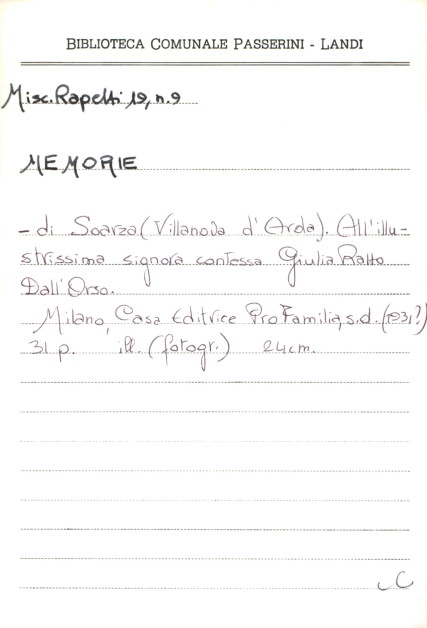 BIBLIOTECA COMUNALE PASSERINI - LANDI
Misc. Rapetti 19, n.9
MEMORIE
- di Soarza (Villanova d'Arda). (All'illu-
strissima signora contessa Giulia Ratto
Dall'Orso.
Milano, Casa Editrice Pro Familia, s.d. (1931?)
31 p. ill. (fotogr.) 24cm.